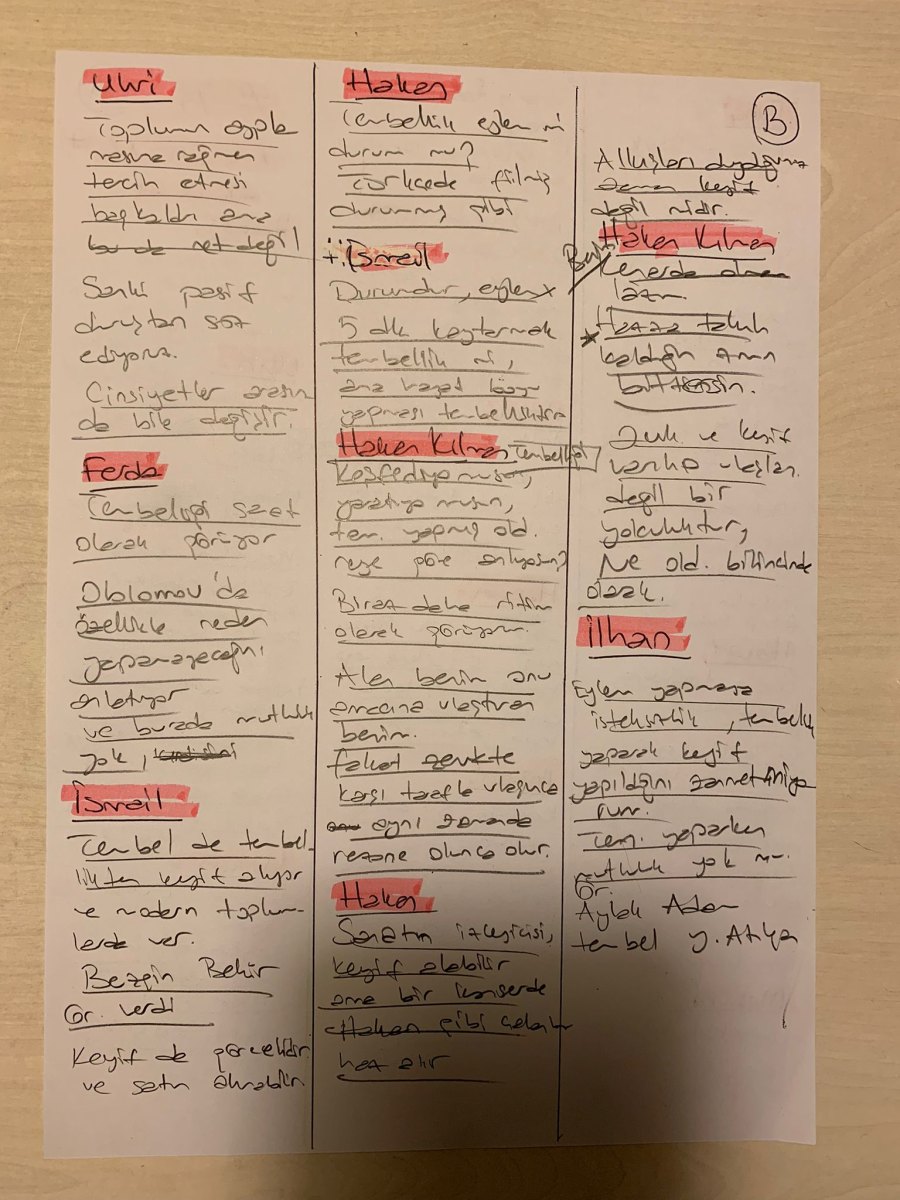 Ulvi
Toplumun
rağmen
tercih etmesi
başkaldırı ama
bu da net değil
Sanki pasif
duruştan söz
ediyoruz.
Cinsiyetler arasın
da bile değişir.
Ferda
Tembelliği sanat
olarak görüyor
Oblomov'da
özellikle neden
yapamayacağını
anlatıyor
ve burada mutluluk
yok,
İsmail
Tembel de tembel-
likten keyif alıyor
ve modern toplum-
larda var.
Bezgin Bekir
ör. verdi
Keyif de görecelidir
ve satın alınabilir.
Hakan
Tembellik eylem mi
durum mu?
Türkcede fiilmiş
durummuş gibi
İsmail
Durumdur, eylem x
5 dk kaytarmak
tembellik mi,
ama hayat boyu
yapması tembelliktir
Hakan Kılman Tembelliği
keşfediyo musun,
yaratıyo musun,
tem. yapmış old.
neye göre anlıyosun?
Biraz daha ritim
olarak görüyorum.
Alan benim onu
amacına ulaştıran
benim.
fakat zevkte
karşı tarafla ulaşınca
aynı zamanda
rezone olunca olur.
Hakan
Sanatın izleyicisi,
keyif alabilir
ama bir konserde
Hakan gibi
haz alır
B
Alkışları duyduğumuz
zaman keyif
değil midir.
Hakan Kılman
kenarda
lazım.
Hazza takılı
kaldığın anın
bittiğin.
Zevk ve keyif
varılıp ulaşılan
değil bir
yolculuktur,
Ne old. bilincinde
olarak.
İlhan
Eylem yapmaya
isteksizlik, tembellik
yaparak keyif
yapıldığını zannetmiyo
rum.
Tem. yaparken
mutluluk yok mu.
Ör.
Aylak Adam
tembel Y. Atılgan